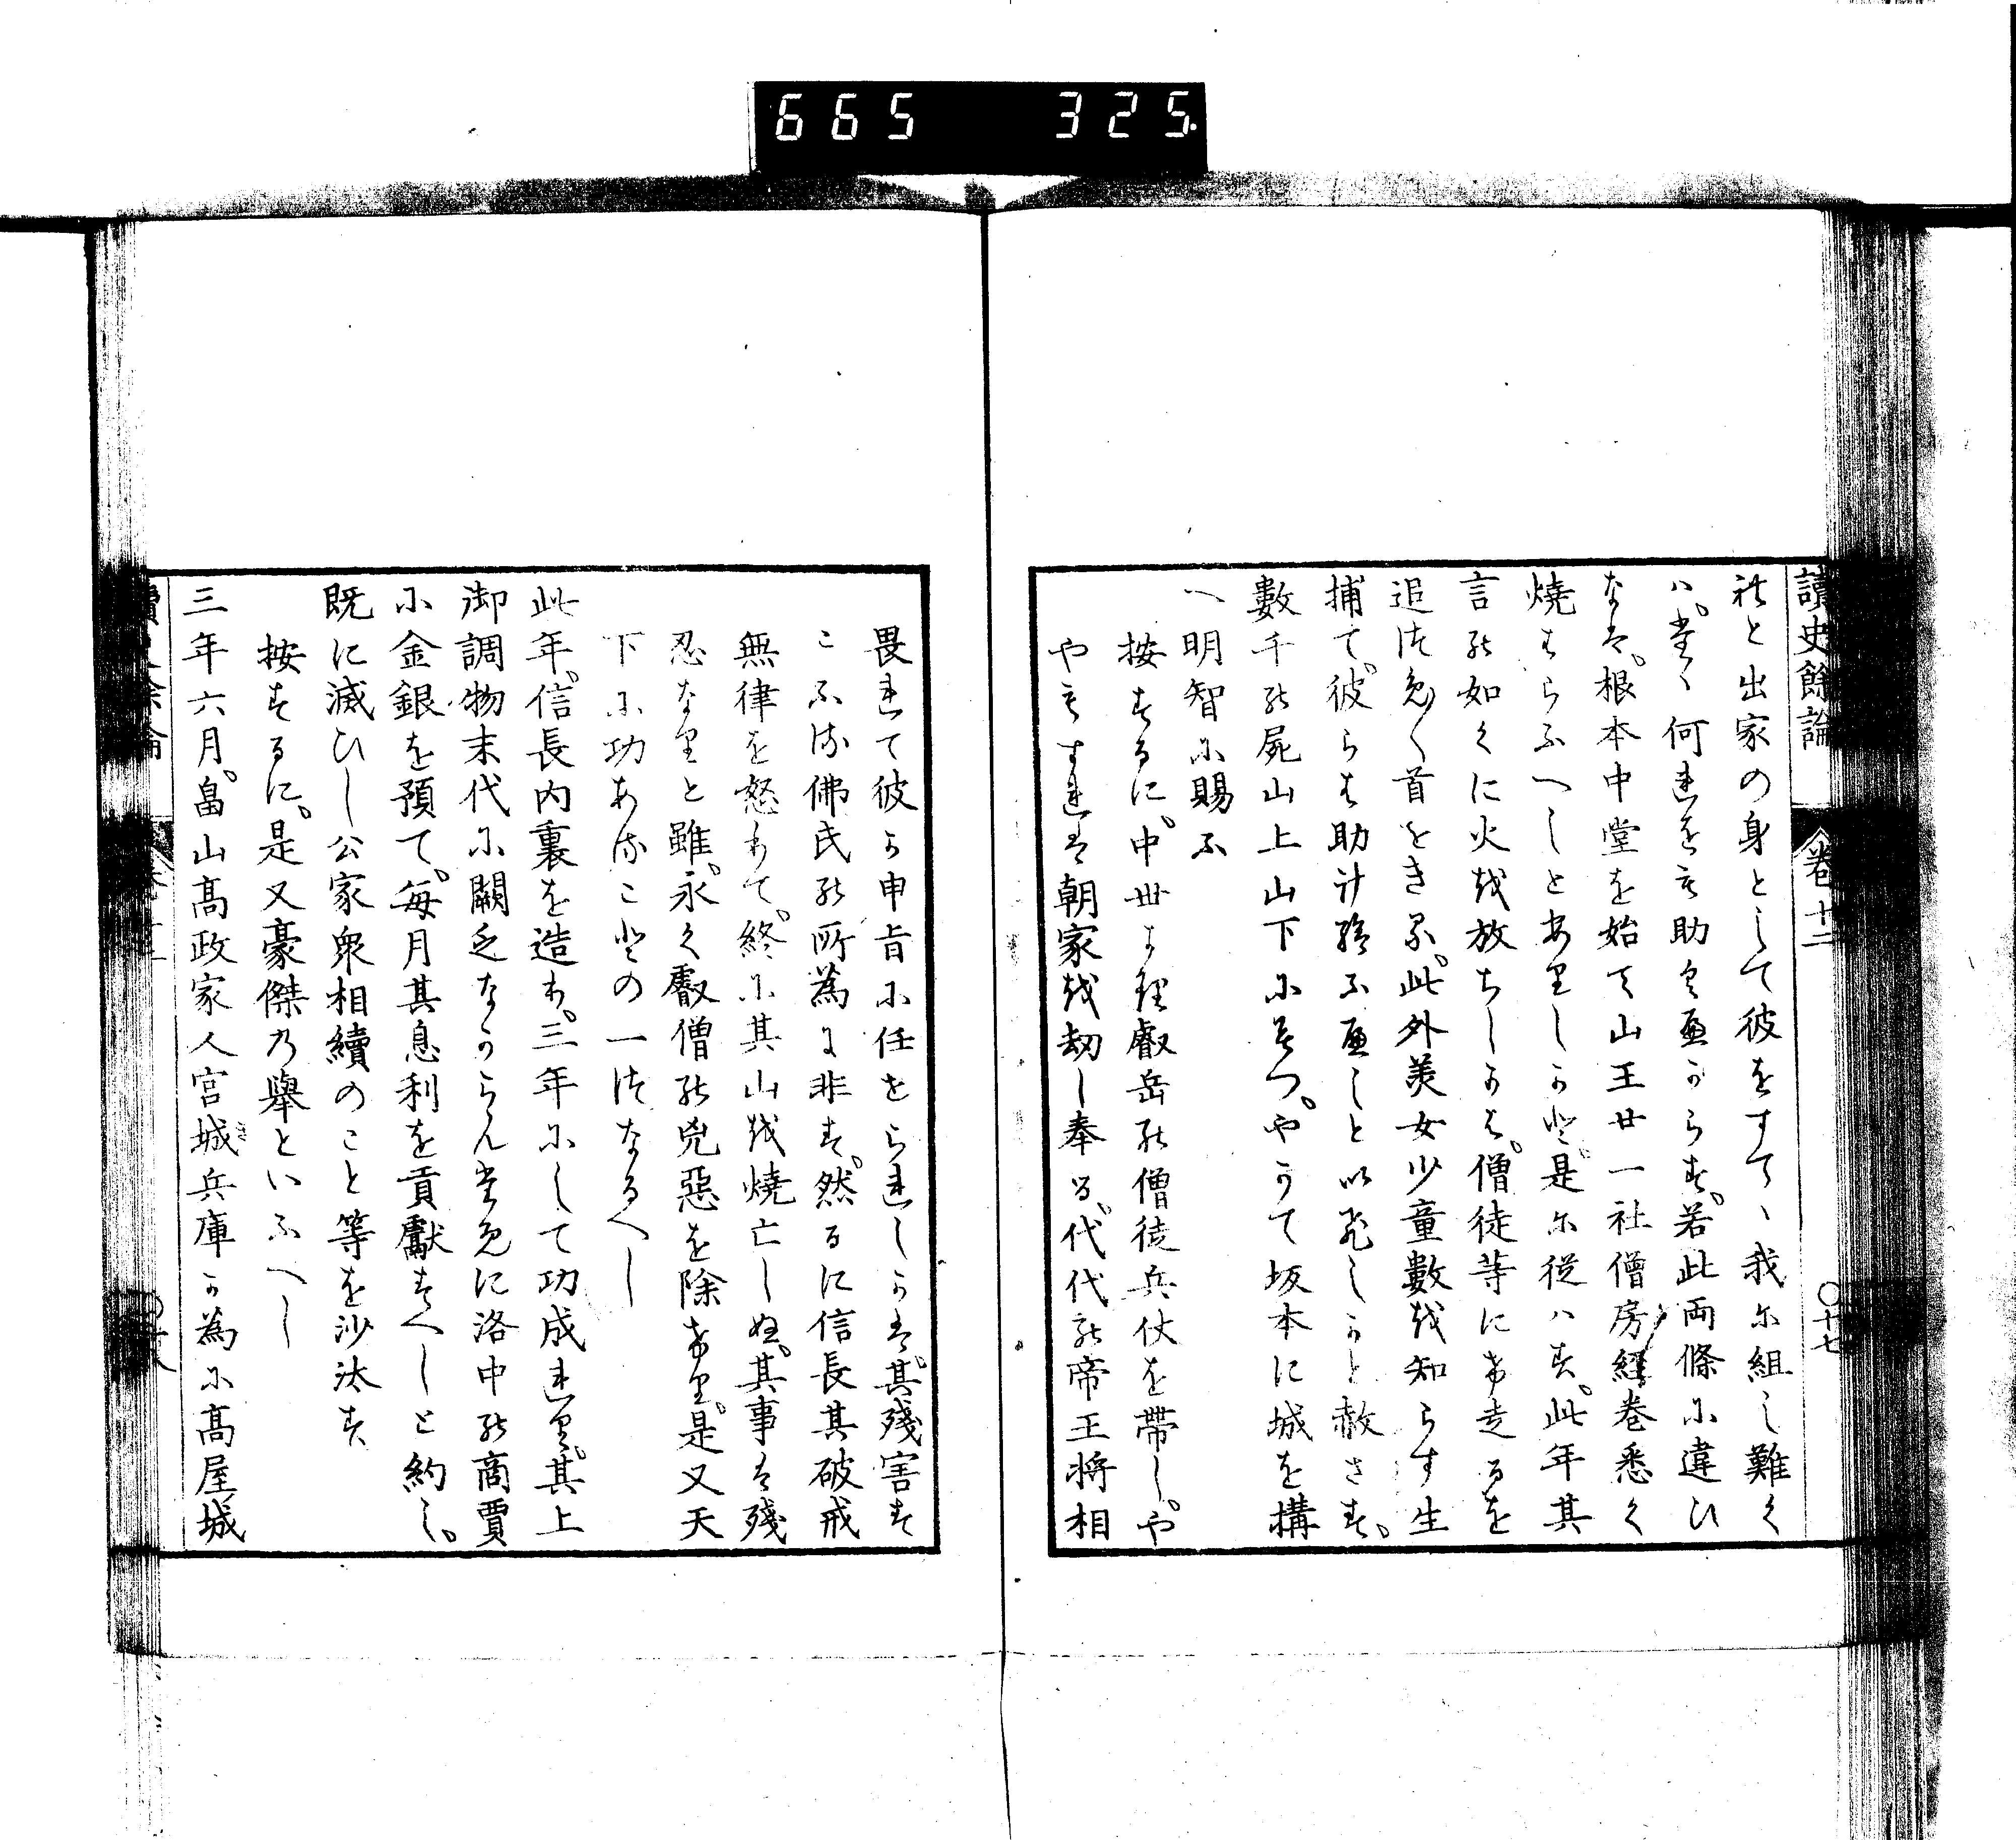 665 325.
讀史餘論 卷十二 〇十七
れと出家の身として彼をすて丶我に組し難く
ハ。堂丶何れをも助く遍からす。若此両條に違ひ
なは。根本中堂を始て山王廿一社僧房經巻悉く
燒はらふへしとありしかと。是に從ハす。此年其
言の如くに火を放ちしかは。僧徒等にけ走るを
追つめ〳〵首をきる。此外美女少童數を知らす生
捕て。彼らは助け給ふ遍しと以飛しかと赦さす。
數千の屍山上山下にみつ。やかて坂本に城を構
へ明智に賜ふ
按するに。中世より叡岳の僧徒兵仗を帶し。や
やもすれは朝家を劫し奉る。代代の帝王將相
畏れて彼か申旨に任せられしかは。其殘害す
こふる佛氏の所為に非す。然るに信長其破戒
無律を怒りて。終に其山を燒亡しぬ。其事は殘
忍なりと雖。永く叡僧の兇惡を除けり。是又天
下に功ある事の一つなるへし
此年。信長内裏を造り。三年にして功成れり。其上
御調物末代に闕乏なからんために洛中の商賈
に金銀を預て。毎月其息利を貢獻すへしと約し。
既に滅ひし公家衆相續のこと等を沙汰す
按するに。是又豪傑の舉といふへし
三年六月。畠山高政家人宮城兵庫か為に高屋城